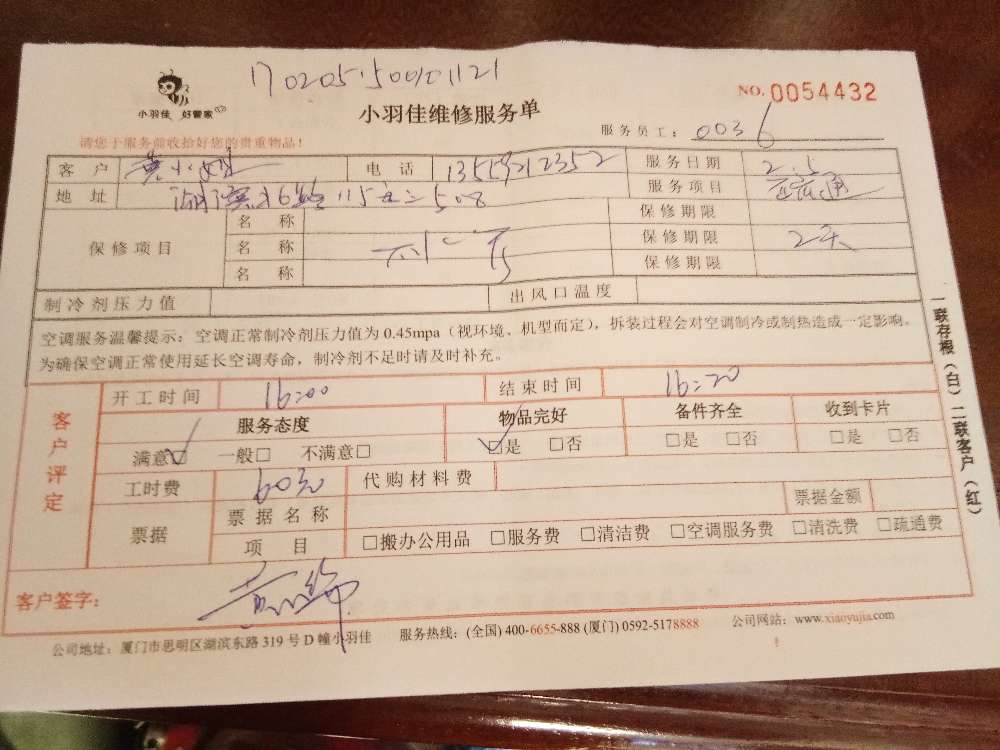 1702051500101121
NO.0054432
小羽佳 好管家
小羽佳维修服务单
服务员工: 0036
请您于服务前收拾好您的贵重物品!
客 户 黄小姐 电 话 13559212352 服务日期 2.5
地 址 508 服务项目
保修项目 名 称 保修期限
名 称 保修期限 2天
名 称 保修期限
制冷剂压力值 出风口温度
空调服务温馨提示:空调正常制冷剂压力值为0.45mpa(视环境、机型而定),拆装过程会对空调制冷或制热造成一定影响。
为确保空调正常使用延长空调寿命,制冷剂不足时请及时补充。
客户评定
开工时间 16:00 结束时间 16:20
服务态度 物品完好 备件齐全 收到卡片
满意☑ 一般□ 不满意□ ☑是 □否 □是 □否 □是 □否
工时费 60元 代购材料费
票据 票据名称 票据金额
项 目 □搬办公用品 □服务费 □清洁费 □空调服务费 □清洗费 □疏通费
客户签字:
公司地址:厦门市思明区湖滨东路319号D幢小羽佳 服务热线:(全国)400-6655-888 (厦门)0592-5178888 公司网站:www.xiaoyujia.com
一联存根(白)二联客户(红)